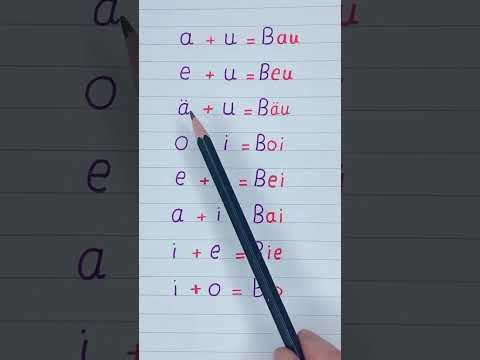 a + u = Bau
e + u = Beu
ä + u = Bäu
o i = Boi
e + = Bei
a + i Bai
i + e = Bie
i + o = B